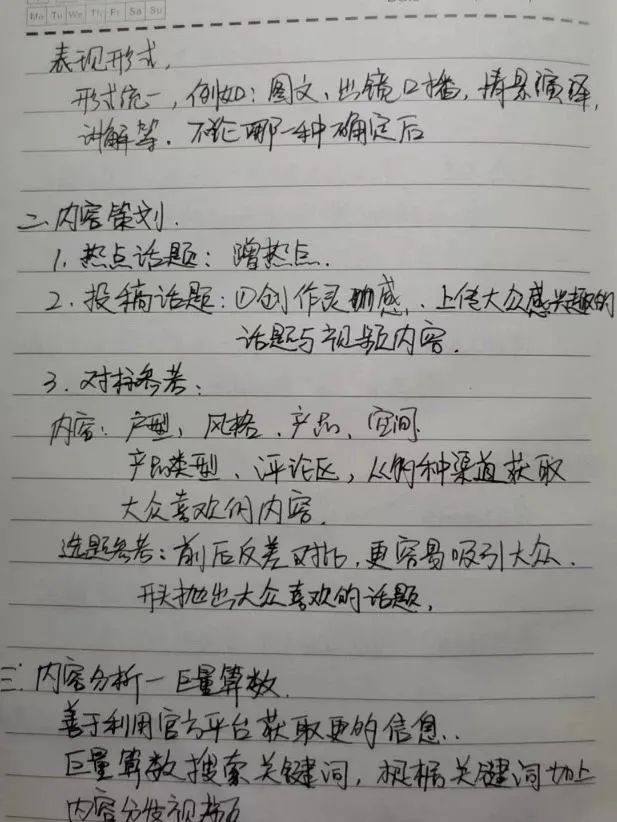 Mo Tu We Th Fr Sa Su
表现形式,
形式统一,例如:图文、出镜口播,情景演绎,
讲解等.不论哪一种确定后
二.内容策划.
1.热点话题:蹭热点.
2.投稿话题:①创作灵感,上传大众感兴趣的
话题与视频内容.
3.对标参考:
内容:户型,风格、产品、空间.
产品类型、评论区,从各种渠道获取
大众喜欢的内容.
选题参考:前后反差对比,更容易吸引大众.
抛出大众喜欢的话题,
三.内容分析—巨量算数.
善于利用官方平台获取更的信息..
巨量算数搜索关键词,根据关键词加上
内容分 视频